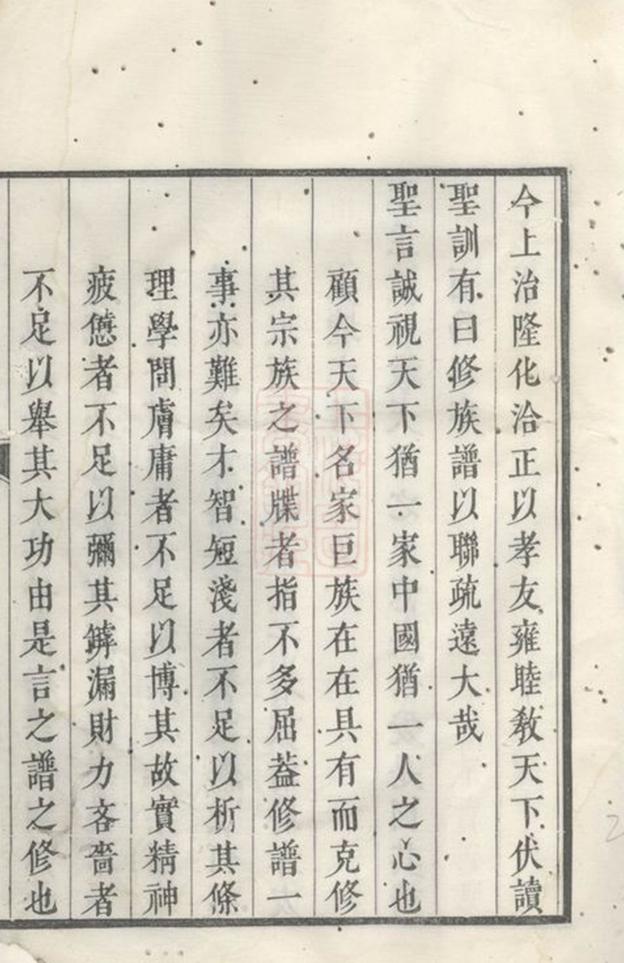 今上治隆化洽正以孝友雍睦教天下伏讀
聖訓有曰修族譜以聯疏遠大哉
聖言誠視天下猶一家中國猶一人之心也
顧今天下名家巨族在在具有而克修
其宗族之譜牒者指不多屈葢修譜一
事亦難矣才智短淺者不足以析其條
理學問膚庸者不足以博其故實精神
疲憊者不足以彌其罅漏財力吝嗇者
不足以舉其大功由是言之譜之修也